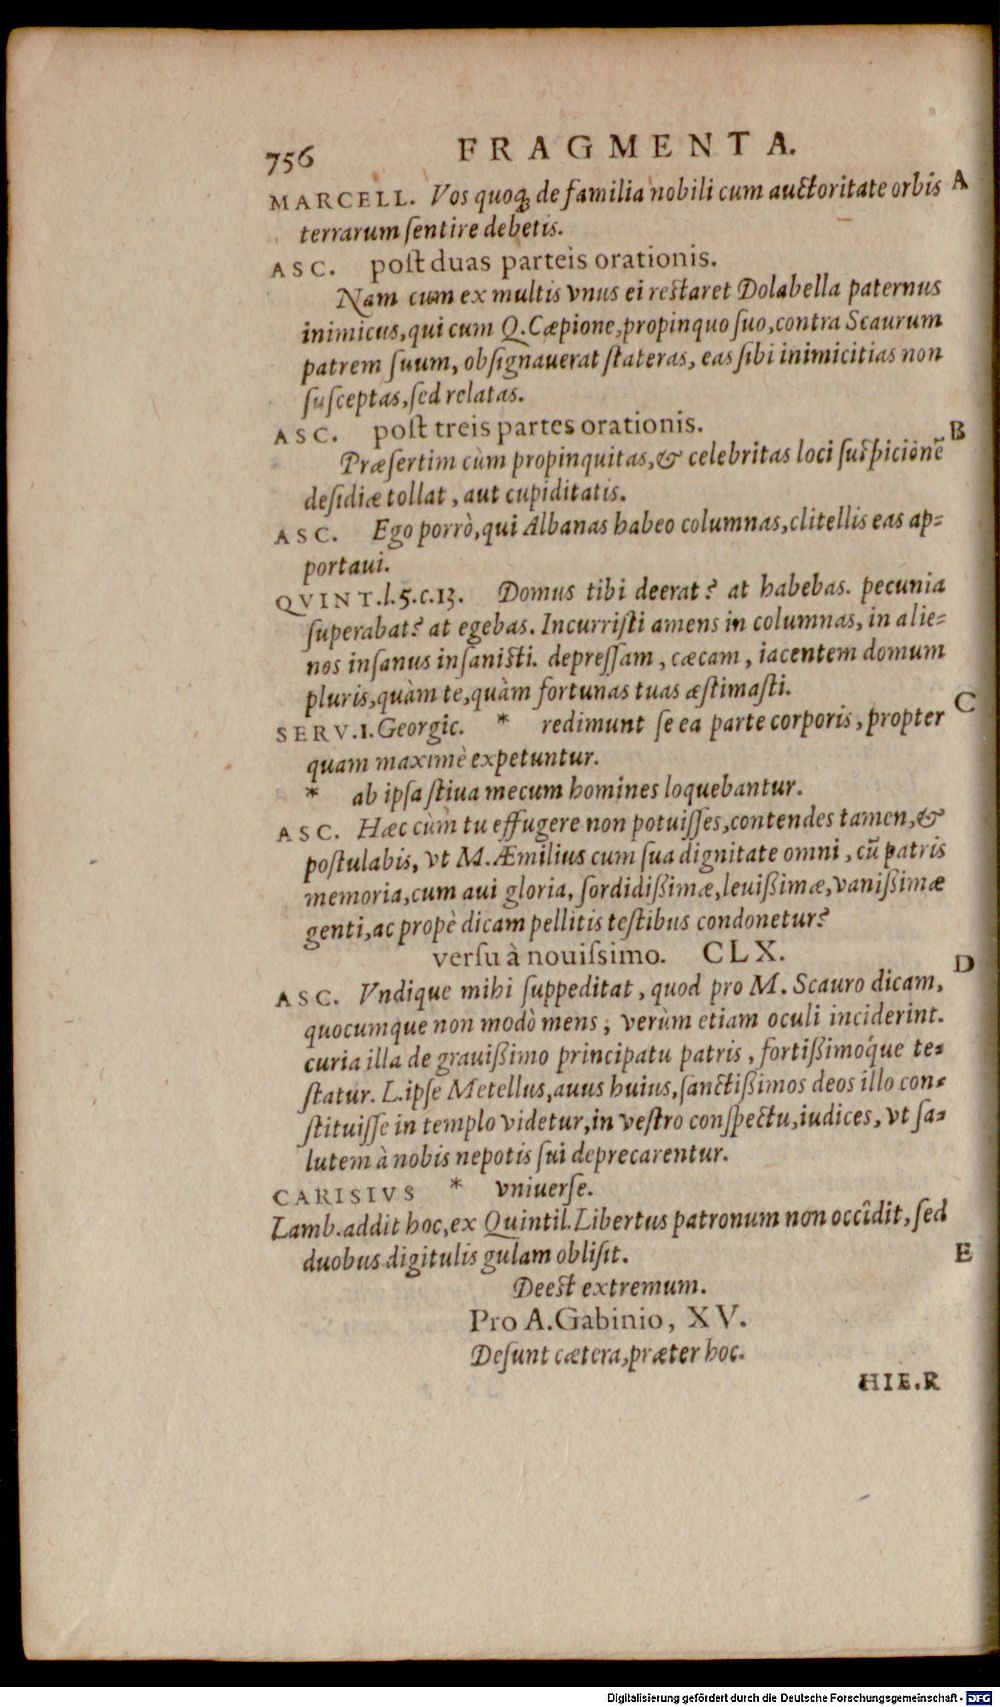 756 FRAGMENTA.
MARCELL. Vos quoq; de familia nobili cum auctoritate orbis A
terrarum ſentire debetis.
ASC. poſt duas parteis orationis.
Nam cum ex multis vnus ei reſtaret Dolabella paternus
inimicus, qui cum Q. Cæpione, propinquo ſuo, contra Scaurum
patrem ſuum, obſignauerat ſtateras, eas ſibi inimicitias non
ſuſceptas, ſed relatas.
ASC. poſt treis partes orationis. B
Præſertim cùm propinquitas, & celebritas loci ſuſpicionē
deſidiæ tollat, aut cupiditatis.
ASC. Ego porrò, qui Albanas habeo columnas, clitellis eas ap-
portaui.
QVINT. l. 5. c. 13. Domus tibi deerat? at habebas. pecunia
ſuperabat? at egebas. Incurriſti amens in columnas, in alie-
nos inſanus inſaniſti. depreſſam, cæcam, iacentem domum
pluris, quàm te, quàm fortunas tuas æſtimaſti. C
SERV. 1. Georgic. * redimunt ſe ea parte corporis, propter
quam maximè expetuntur.
* ab ipſa ſtiua mecum homines loquebantur.
ASC. Hæc cùm tu effugere non potuiſſes, contendes tamen, &
poſtulabis, vt M. Æmilius cum ſua dignitate omni, cū patris
memoria, cum aui gloria, ſordidißimæ, leuißimæ, vanißimæ
genti, ac propè dicam pellitis teſtibus condonetur?
verſu à nouiſsimo. CLX. D
ASC. Vndique mihi ſuppeditat, quod pro M. Scauro dicam,
quocumque non modò mens, verùm etiam oculi inciderint.
curia illa de grauißimo principatu patris, fortißimoque te-
ſtatur. L. ipſe Metellus, auus huius, ſanctißimos deos illo con-
ſtituiſſe in templo videtur, in veſtro conſpectu, iudices, vt ſa-
lutem à nobis nepotis ſui deprecarentur.
CARISIVS * vniuerſe.
Lamb. addit hoc, ex Quintil. Libertus patronum non occîdit, ſed
duobus digitulis gulam obliſit. E
Deeſt extremum.
Pro A. Gabinio, XV.
Deſunt cætera, præter hoc.
HIE.R
Digitalisierung gefördert durch die Deutsche Forschungsgemeinschaft - DFG